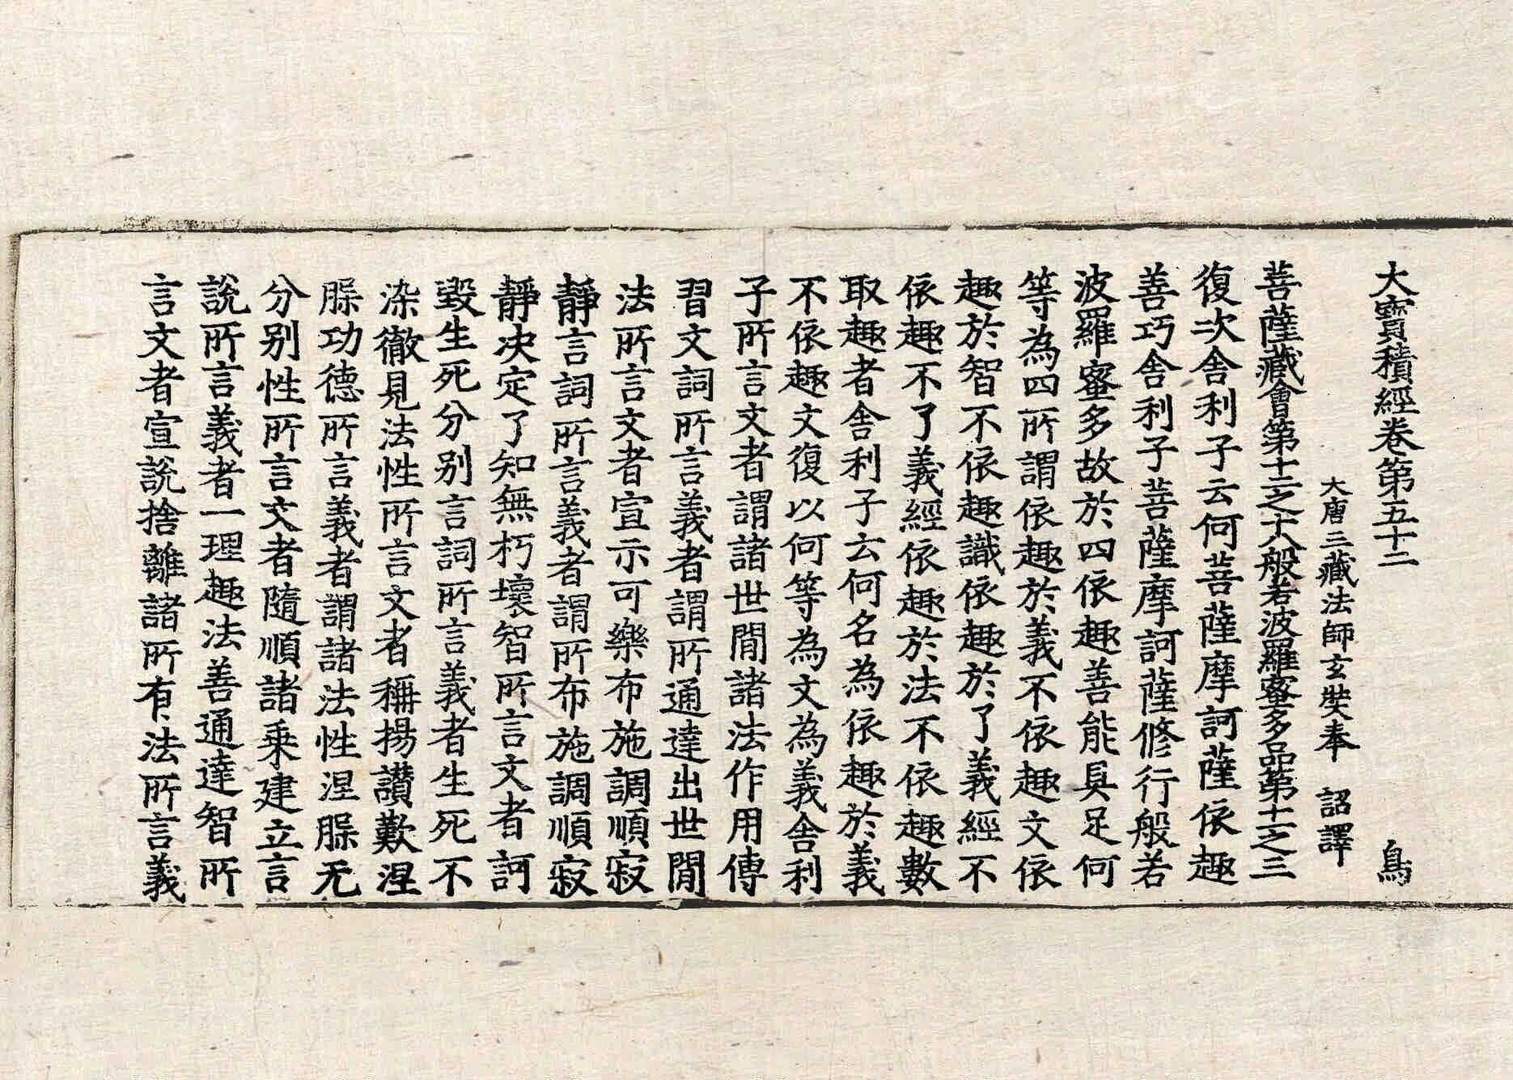 大寳積經卷第五十二
鳥
大唐三藏法師玄奘奉 詔譯
菩薩藏會第十二之十八般若波羅蜜多品第十一之三
復次舍利子云何菩薩摩訶薩依趣
善巧舍利子菩薩摩訶薩修行般若
波羅蜜多故於四依趣善能具足何
等為四所謂依趣於義不依趣文依
趣於智不依趣識依趣於了義經不
依趣不了義經依趣於法不依趣數
取趣者舍利子云何名為依趣於義
不依趣文復以何等為文為義舍利
子所言文者謂諸世間諸法作用傳
習文詞所言義者謂所通達出世間
法所言文者宣示可樂布施調順寂
靜言詞所言義者謂所布施調順寂
靜决定了知無朽壞智所言文者訶
毀生死分別言詞所言義者生死不
染徹見法性所言文者稱揚讃歎涅
槃功德所言義者謂諸法性涅槃无
分別性所言文者隨順諸乗建立言
說所言義者一理趣法善通達智所
言文者宣說捨離諸所有法所言義